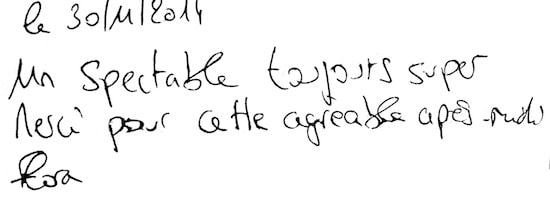 le 30/11/2014
Un Spectable toujours super
Merci pour cette agreable après-midi